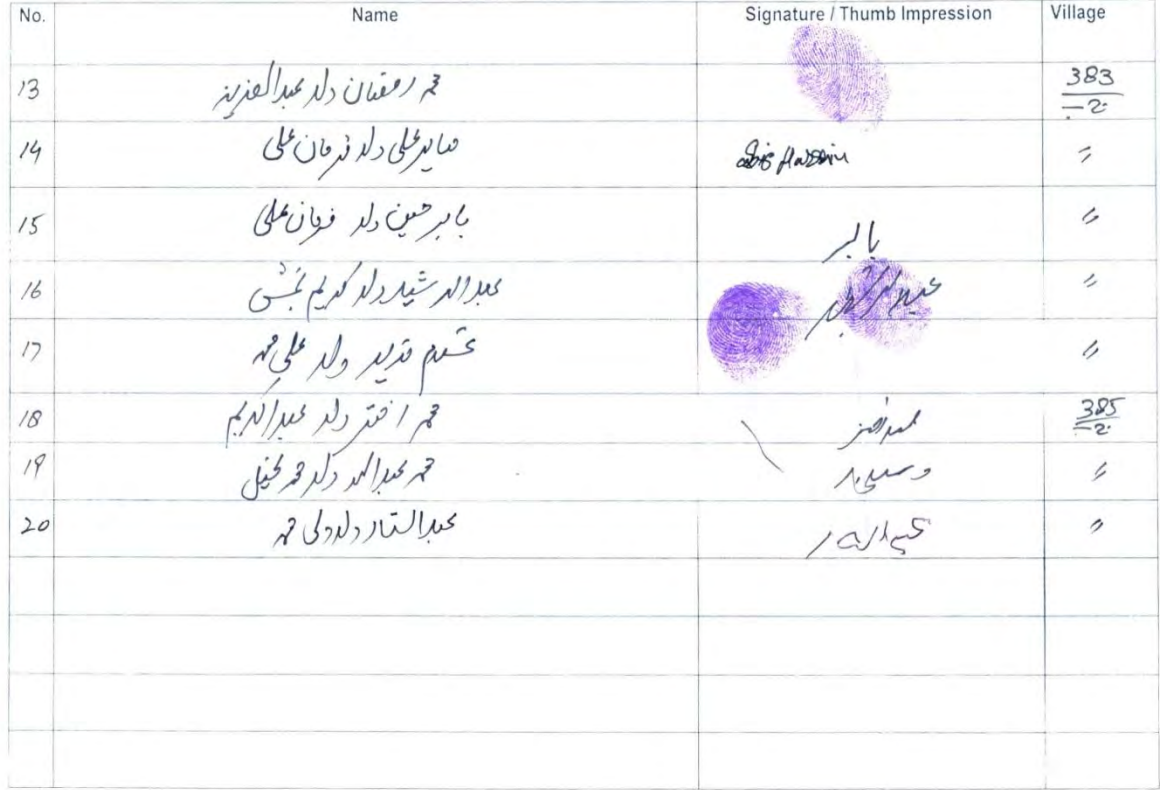 No. Name Signature / Thumb Impression Village
13 محمد رمضان ولد عبدالعزیز 383/-2
14 صابر علی ولد فرمان علی Hussain 〃
15 بابر حسین ولد فرمان علی بابر 〃
16 عبدالرشید ولد کریم بخش عبدالرشید 〃
17 ولد علی محمد 〃
18 محمد اختر ولد عبدالکریم محمد اختر 385/-2
19 محمد عبداللہ ولد محمد 〃
20 عبدالستار ولد ولی محمد 〃